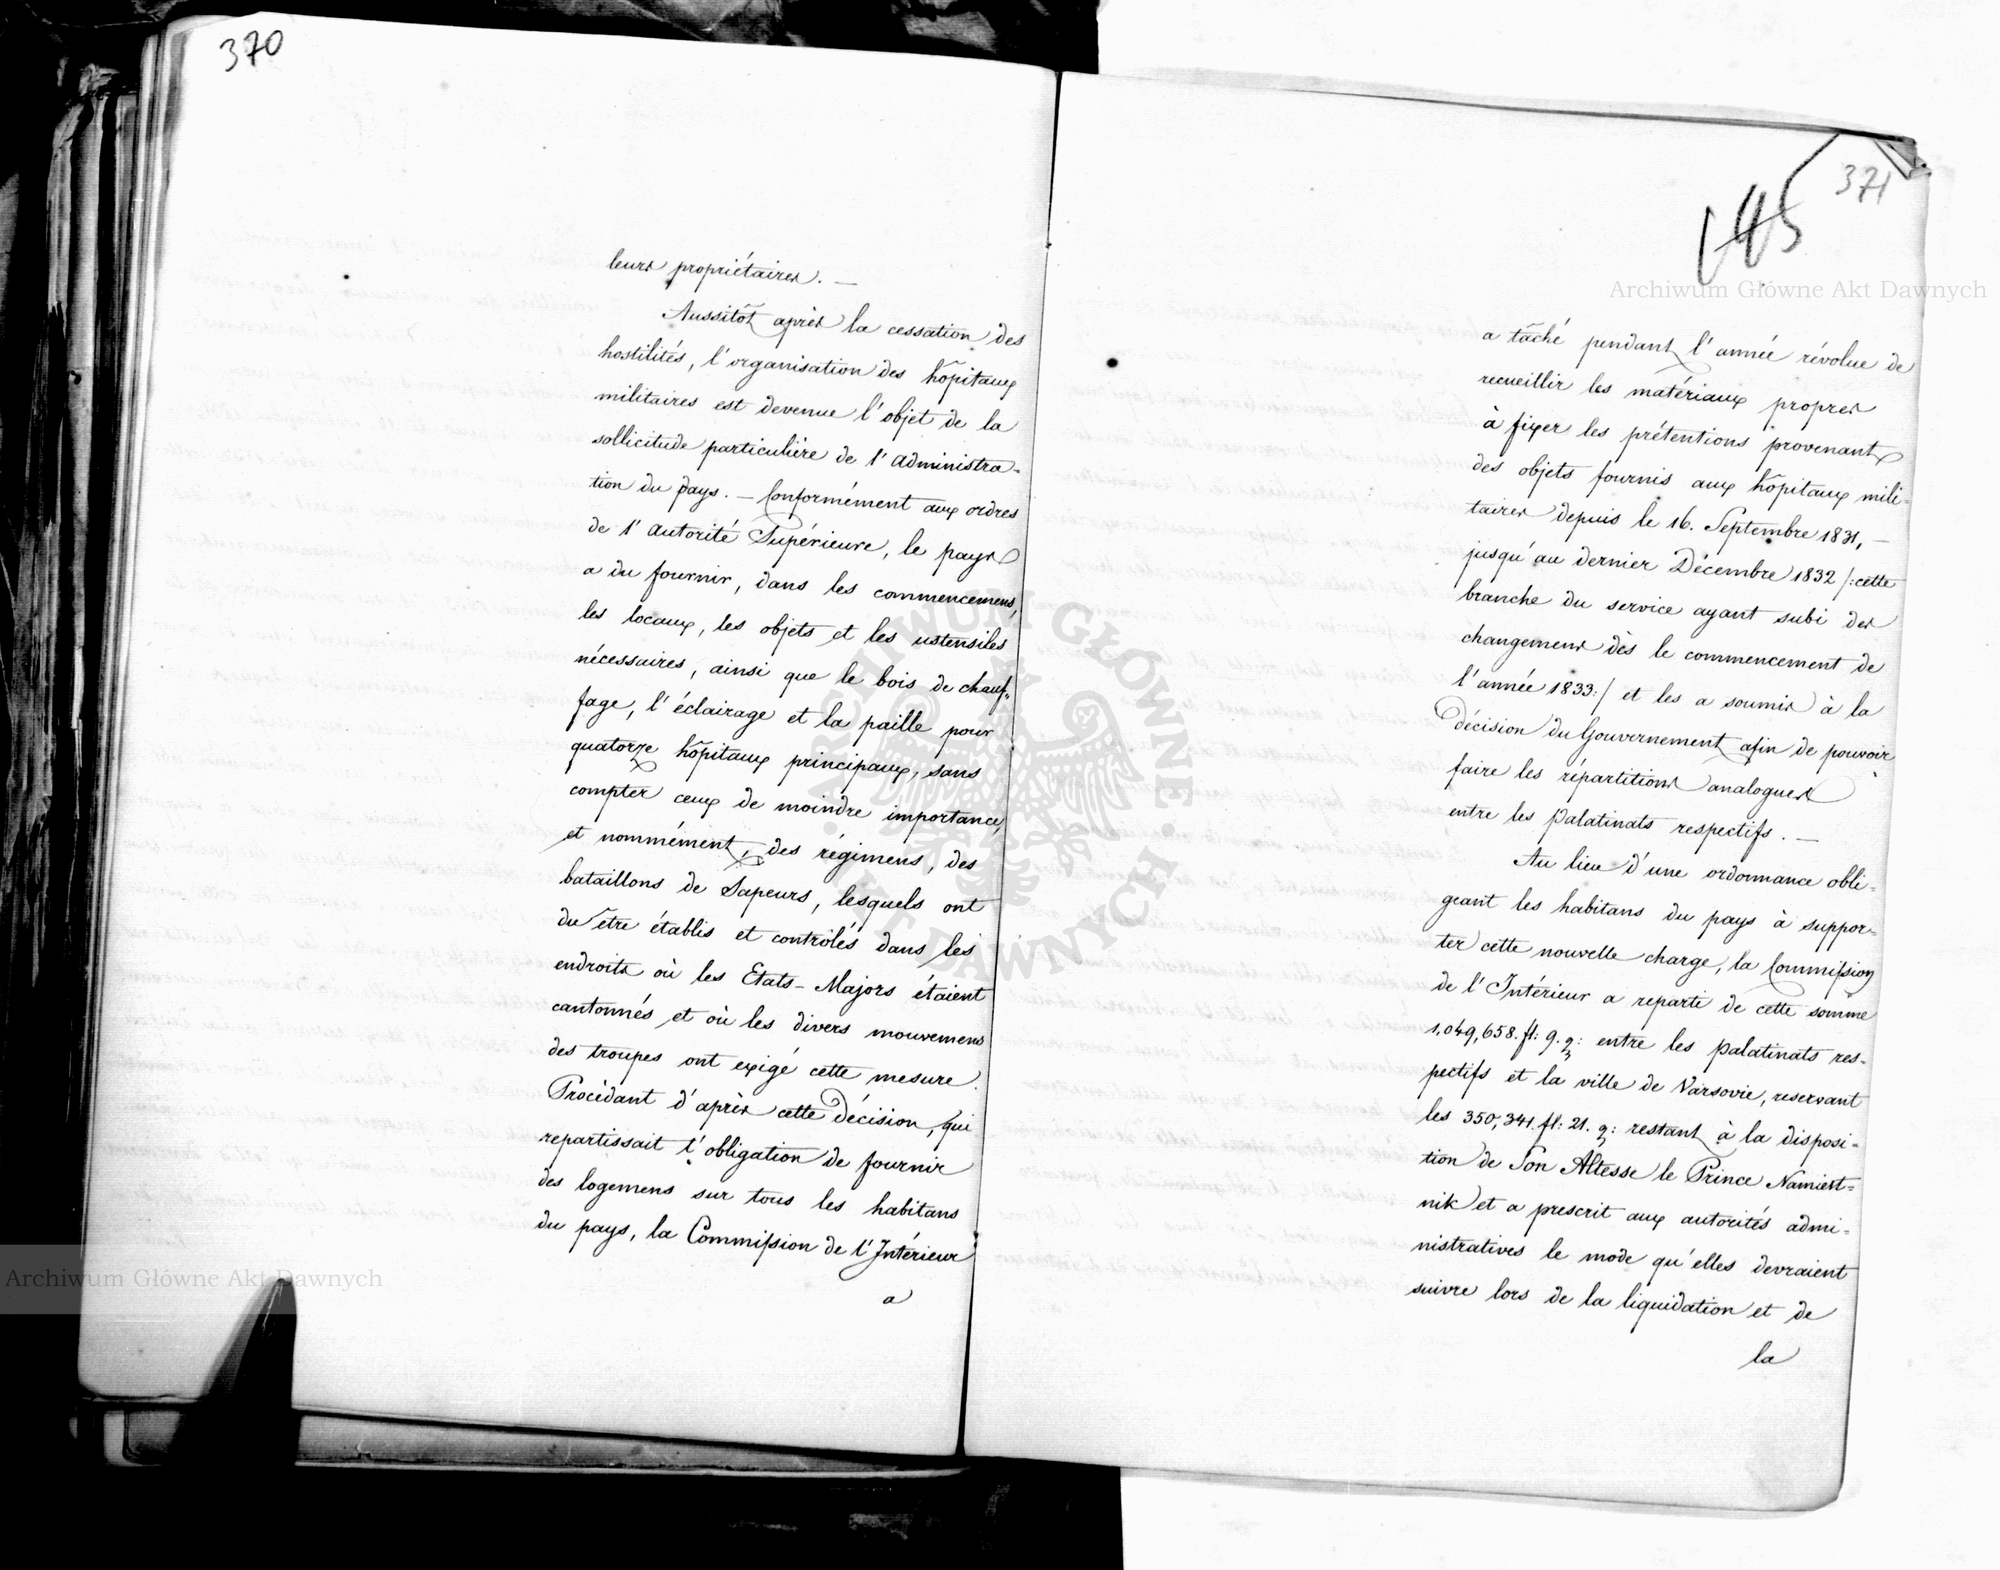 370
leurs propriétaires. —
Aussitôt après la cessation des
hostilités, l'organisation des hôpitaux
militaires est devenue l'objet de la
sollicitude particulière de l'administra-
tion du pays. — Conformément aux ordres
de l'autorité Supérieure, le pays
a du fournir, dans les commencemens,
les locaux, les objets et les ustensiles
nécessaires, ainsi que le bois de chauf-
fage, l'éclairage et la paille pour
quatorze hôpitaux principaux, sans
compter ceux de moindre importance,
et nommément, des régimens, des
bataillons de Sapeurs, lesquels ont
du être établis et contrôlés dans les
endroits où les Etats-Majors étaient
cantonnés et où les divers mouvemens
des troupes ont exigé cette mesure.
Procédant d'après cette décision, qui
repartissait l'obligation de fournir
des logemens sur tous les habitans
du pays, la Commission de l'Intérieur
a
371
145
a tâché pendant l'année révolue de
recueillir les matériaux propres
à fixer les prétentions provenant
des objets fournis aux hôpitaux mili-
taires depuis le 16. Septembre 1831, —
jusqu'au dernier Décembre 1832 /: cette
branche du service ayant subi des
changemens dès le commencement de
l'année 1833:/ et les a soumis à la
décision du Gouvernement afin de pouvoir
faire les répartitions analogues
entre les Palatinats respectifs. —
Au lieu d'une ordonnance obli-
geant les habitans du pays à suppor-
ter cette nouvelle charge, la Commission
de l'Intérieur a reparti de cette somme
1,049,658. fl: 9. g: entre les Palatinats res-
pectifs et la ville de Varsovie, reservant
les 350,341. fl: 21. g: restant à la disposi-
tion de Son Altesse le Prince Namiest-
nik et a prescrit aux autorités admi-
nistratives le mode qu'elles devraient
suivre lors de la liquidation et de
la
Archiwum Główne Akt Dawnych
Archiwum Główne Akt Dawnych
ARCHIWUM GŁÓWNE • AKT DAWNYCH •